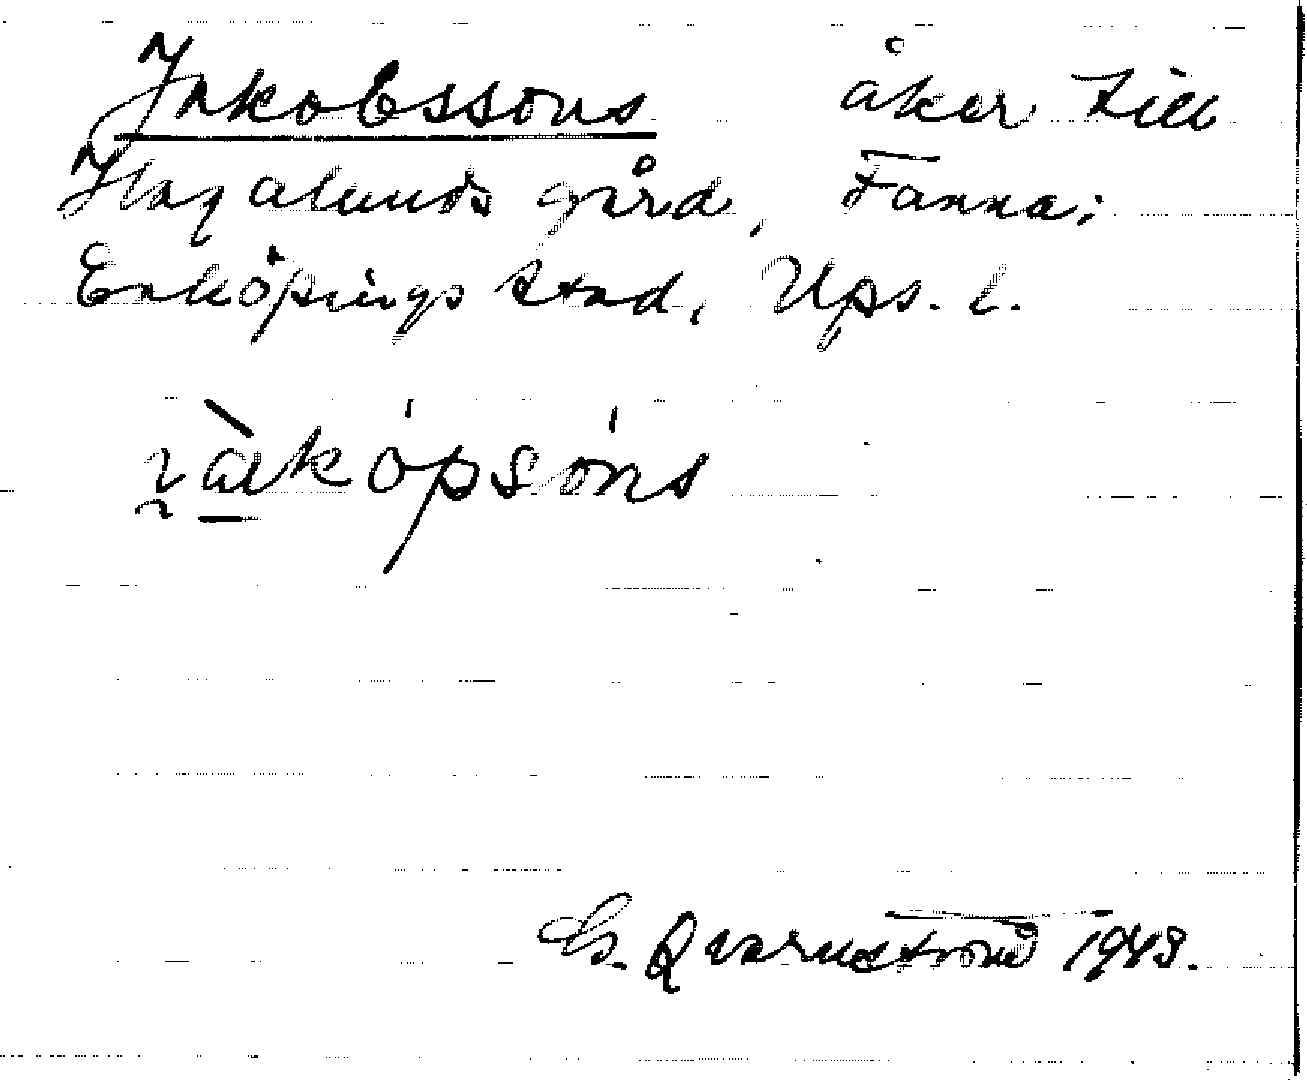 Jakobssons åker till
Hagalunds gård, Fanna;
Enköpings stad, Ups. l.
Qvarnström 1943.